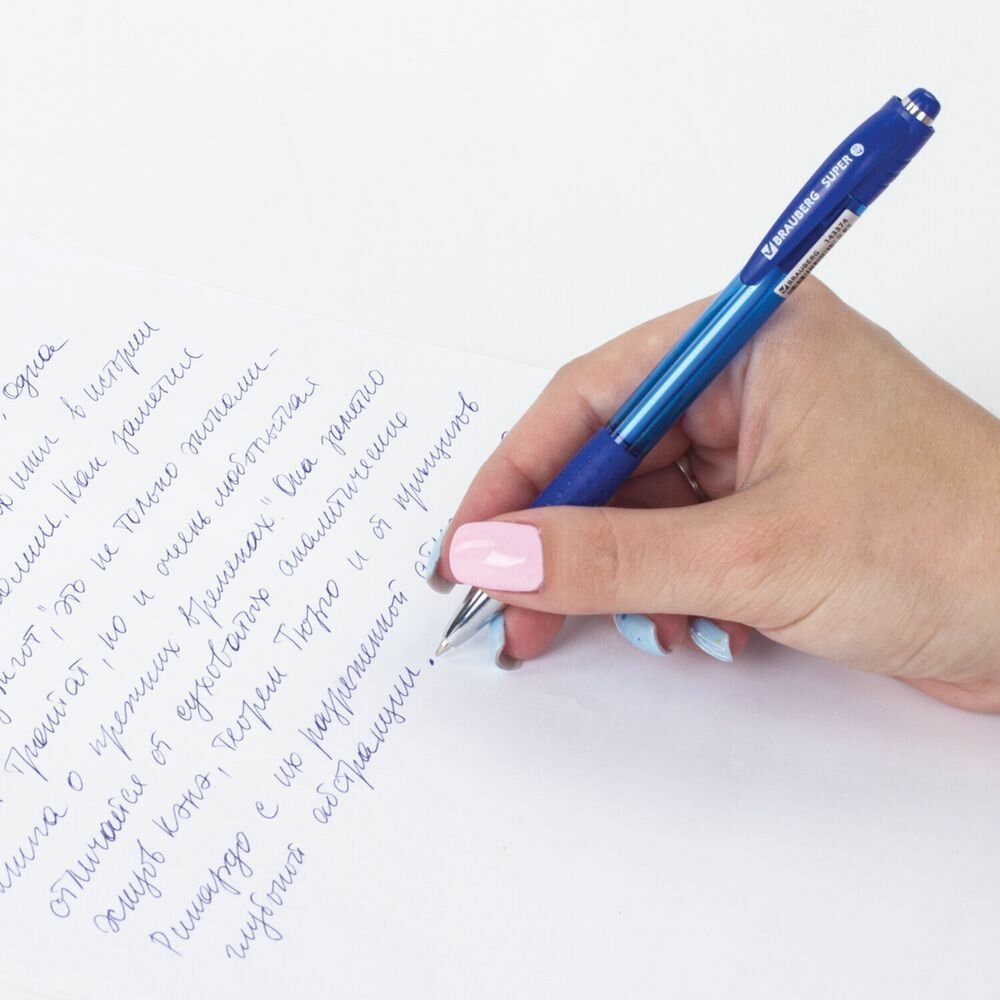 , одна
в истории
. Как заметил
", это не только экономи-
Трактат, но и очень любопытная
книга о прежних временах". Она заметно
отличается от суховатых аналитических
эскизов Кэнэ, теорем Тюрго и от принципов
Рикардо с их разреженной
глубокой абстракции.
BRAUBERG SUPER
BRAUBERG 143374